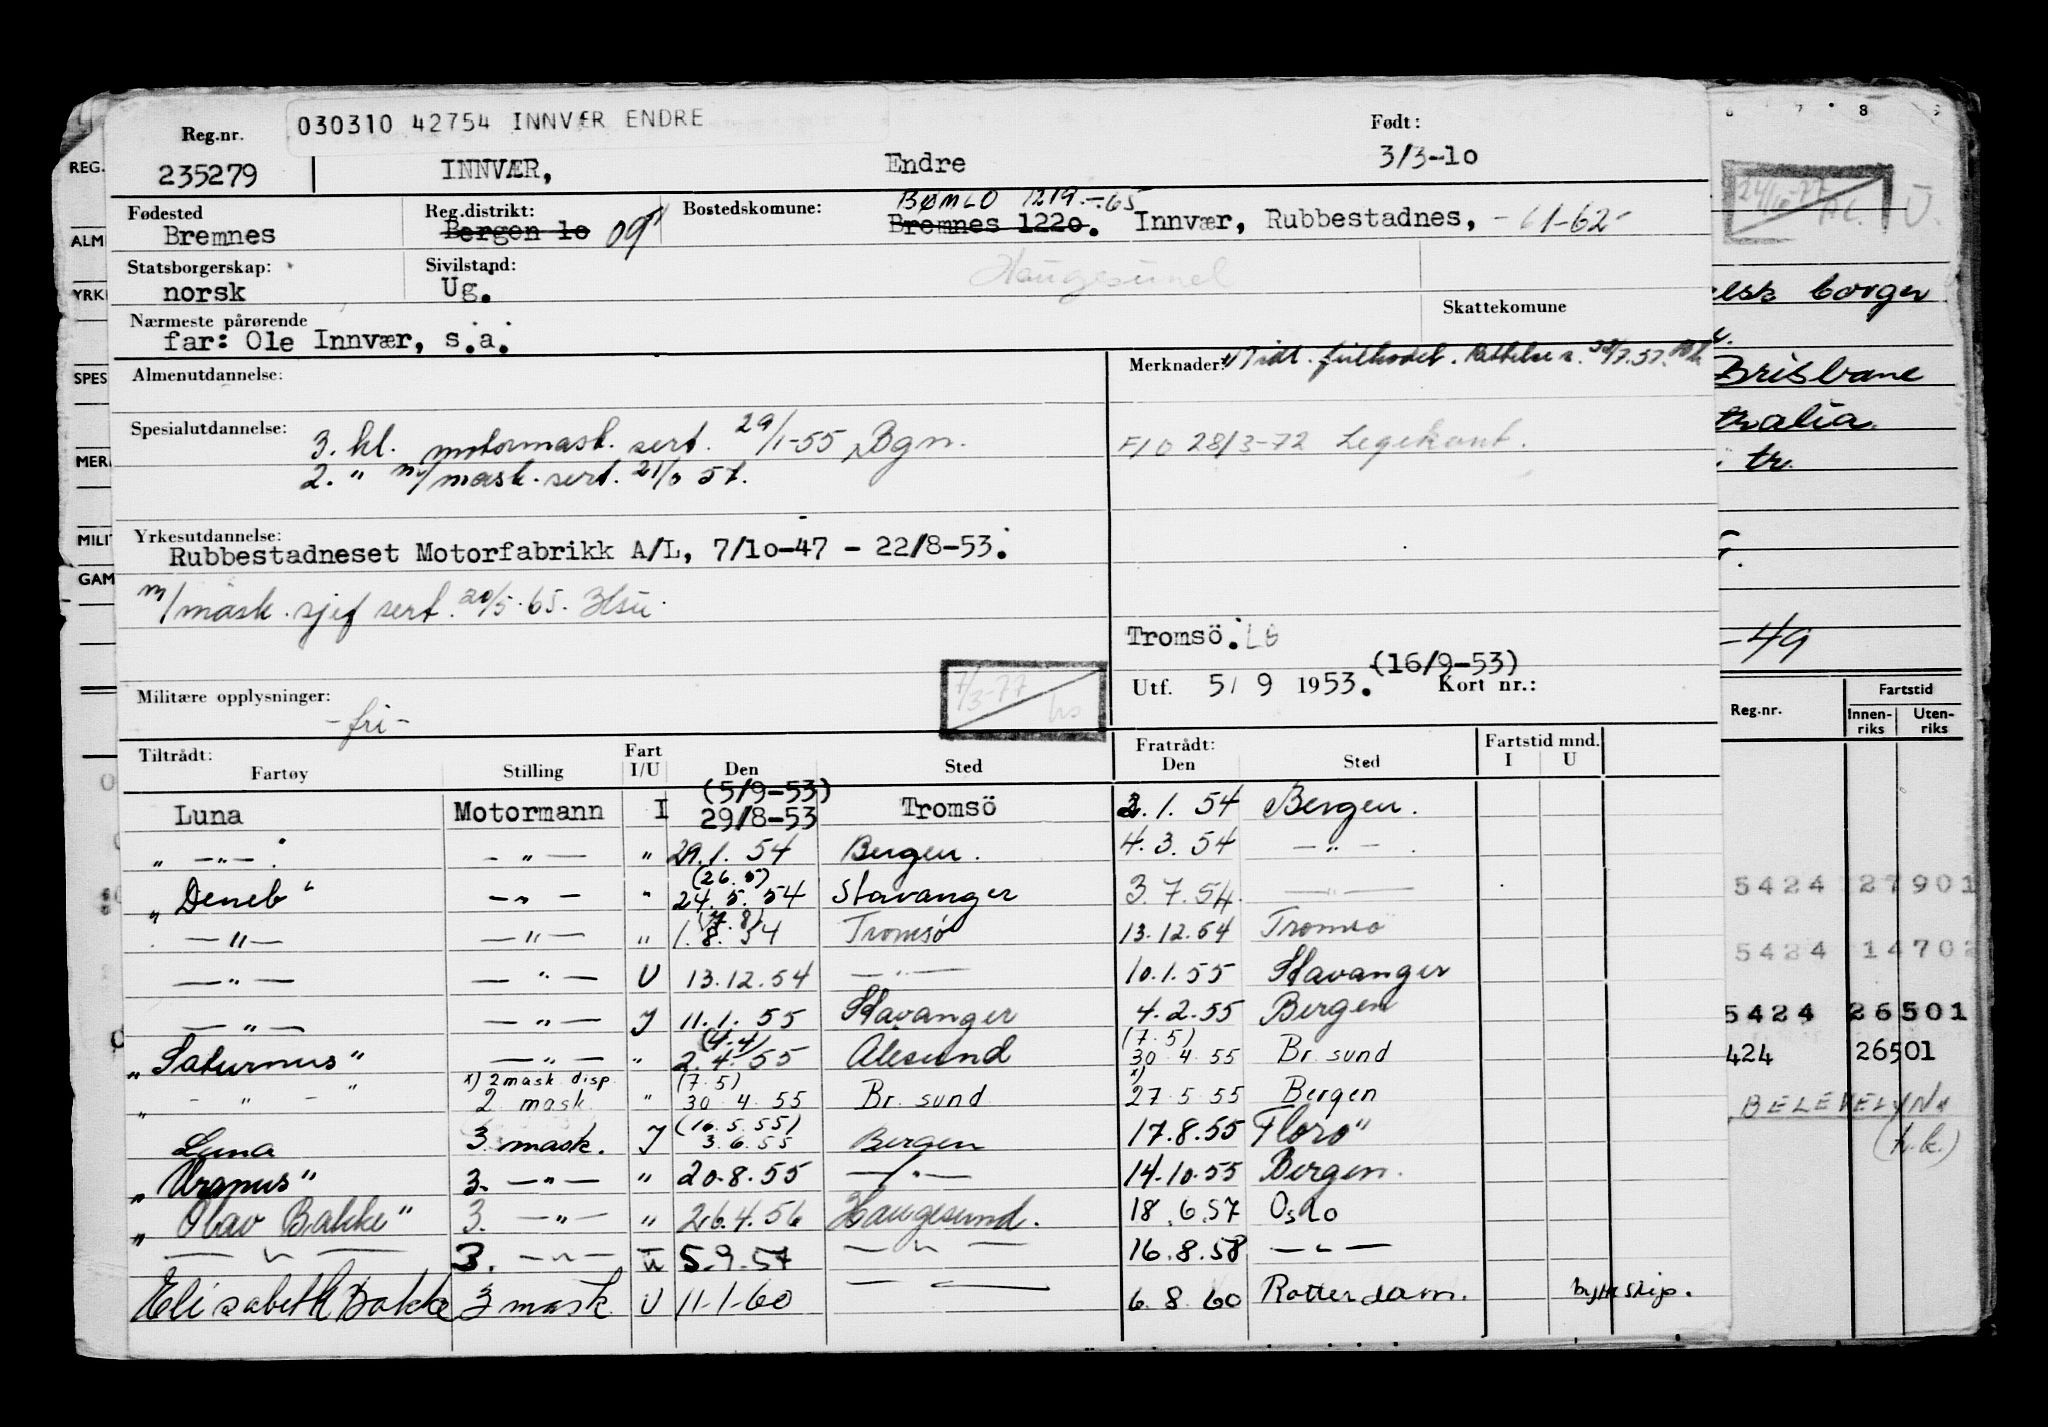 030310 42754 INNVÆR ENDRE
Reg.nr. Født:
235279 INNVÆR, Endre 3/3-1o
Fødested Reg.distrikt: Bostedskomune: BØMLO 1219.-65
Bremnes Bergen 1o 09 Bremnes 122o. Innvær, Rubbestadnes, -61-62-
Statsborgerskap: Sivilstand: Haugesund
norsk Ug.
Nærmeste pårørende Skattekomune
far: Ole Innvær, s.a.
Almenutdannelse: Merknader:
Spesialutdannelse: 3. kl. motormask. sert. 29/1-55 Bgn.
F/O 28/3-72 Legekont.
2. " m/mask. sert. 21/6 57.
Yrkesutdannelse:
Rubbestadneset Motorfabrikk A/L, 7/1o-47 - 22/8-53.
m/mask. sjef sert. 20/5.65. Hsu.
Tromsö. LG
Utf. 5/ 9 1953. (16/9-53) Kort nr.:
Militære opplysninger: 7/3-77
-fri-
Tiltrådt: Fart Fratrådt: Fartstid mnd.
Fartøy Stilling I/U Den Sted Den Sted I U
(5/9-53)
Luna Motormann I 29/8-53 Tromsö 2.1. 54 Bergen.
" -"- . - " - " 29.1. 54 Bergen. 4.3. 54 - " - .
(26.5)
"Deneb" -"- " 24.5. 54 Stavanger 3.7.54 -"-
-"- -"- " 1.8.54 Tromsø 13.12.54 Tromsø
-"- -"- U 13.12.54 -"- 10.1.55 Stavanger
-"- -"- I 11.1.55 Stavanger 4.2.55 Bergen
(4.4) (7.5)
"Saturnus" -"- " 2.4.55 Ålesund 30.4.55 Br. sund
x) 2 mask. disp. (7.5) x)
" - " - " 2 mask. " 30 4 55 Br. sund 27.5.55 Bergen
(16.5.55)
Luna 3 mask. I 3.6.55 Bergen 17.8.55 Florø
"Uranus" 3. -"- " 20.8.55 -"- 14.10.55 Bergen.
"Olav Bakke" 3. -"- " 26.4.56 Haugesund. 18.6.57 Oslo
-"- 3. -"- U 5.9.57 -"- 16.8.58 -"-
Elisabeth Bakke 3 mask. U 11-1-60 -"- 6.8.60 Rotterdam. bytte skip.
REG.
ALM
YRK
SPES
MER
MILIT
GAM
7 8 9
24/10-77
U.
elsk borger
Brisbane
tralia
tr.
-49
Fartstid
Reg.nr. Innen-riks Uten-riks
5424 27901
5424 14702
5424 26501
424 26501
BELEVELYN
(h.k.)